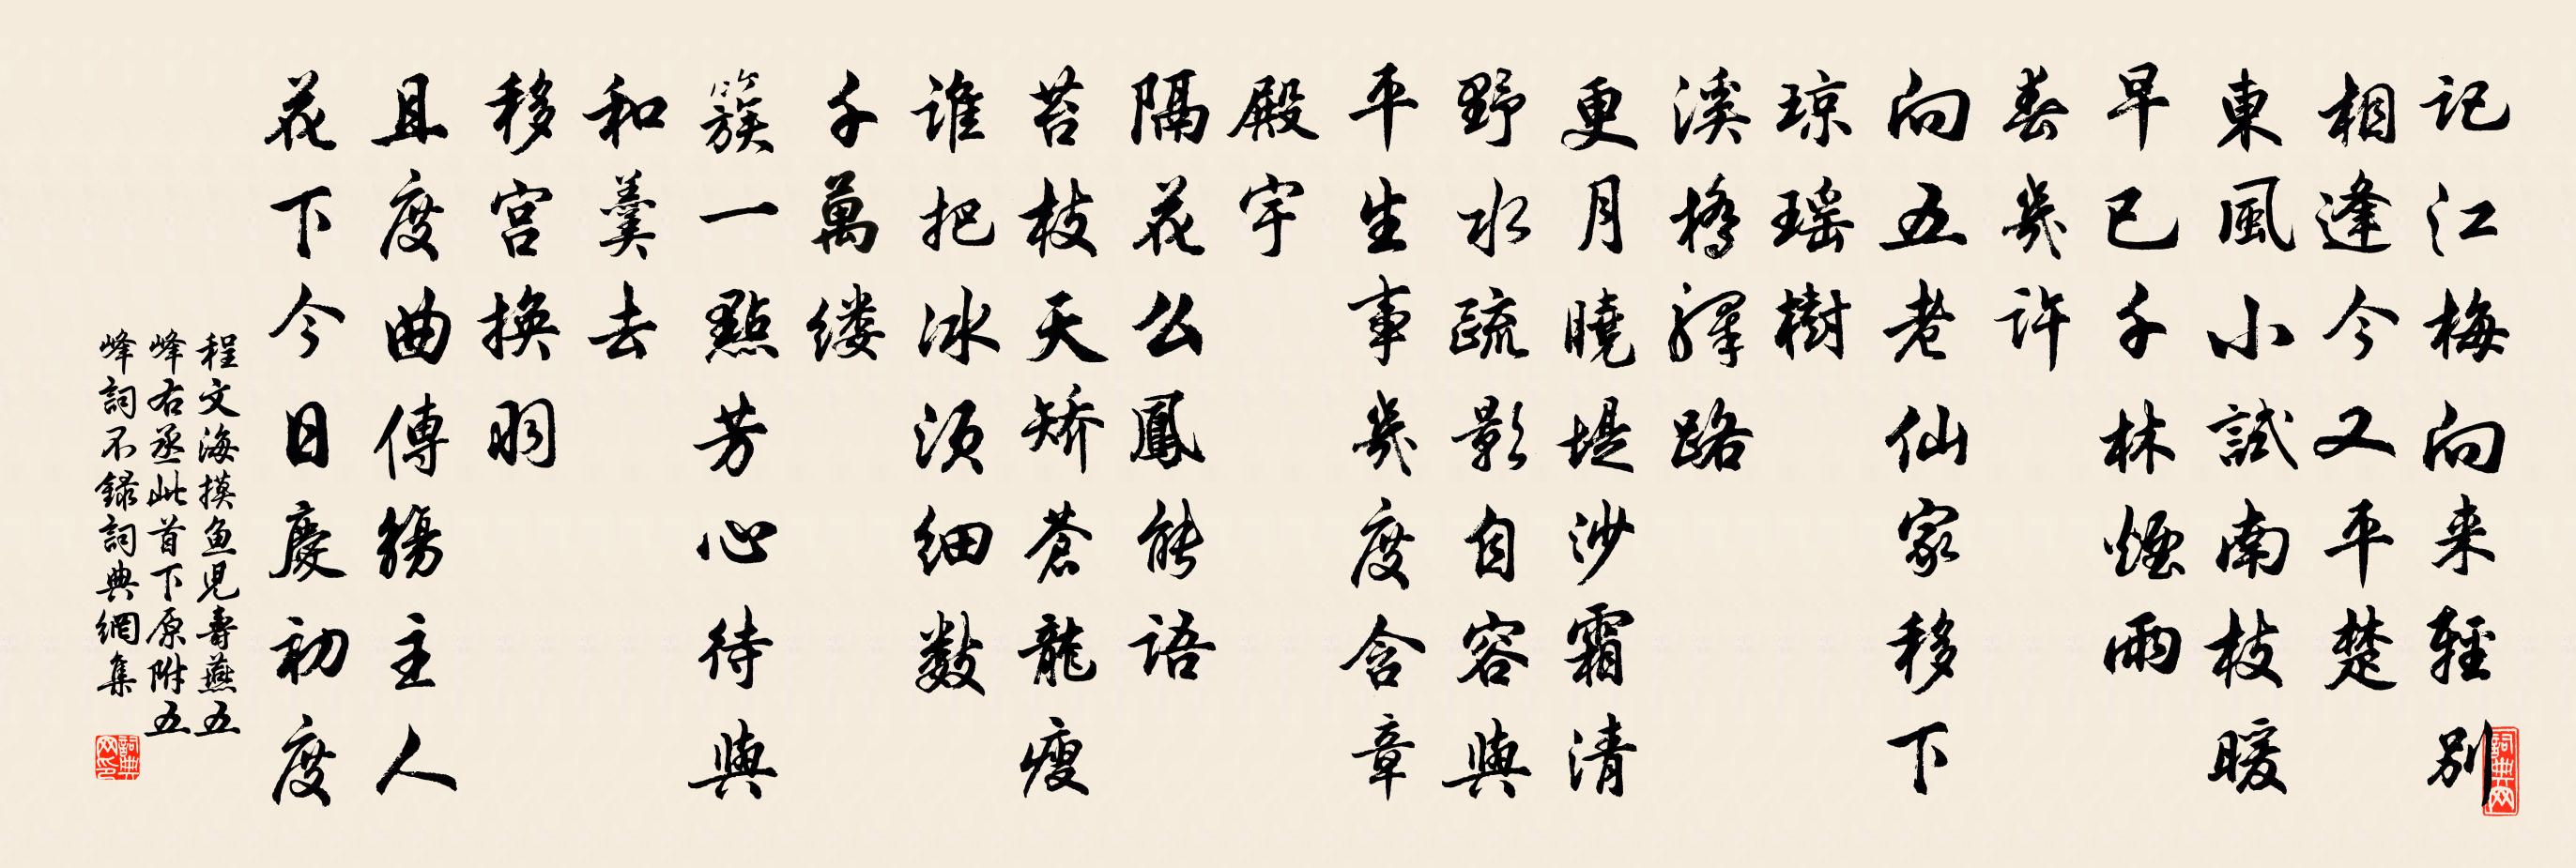 记江梅向来轻别
相逢今又平楚
東風小試南枝暖
早已千林煙雨
春幾許
向五老仙家移下
琼瑶樹
溪橋驛路
更月曉堤沙霜清
野水疏影自容與
平生事幾度含章
殿宇
隔花么鳳能語
苔枝天矫蒼龍瘦
谁把冰须细數
千萬缕
簇一點芳心待與
和羹去
移宫换羽
且度曲傳觞主人
花下今日慶初度
程文海摸鱼児壽燕五
峰右丞此首下原附五
峰詞不録詞典網集
詞典网
詞典网印